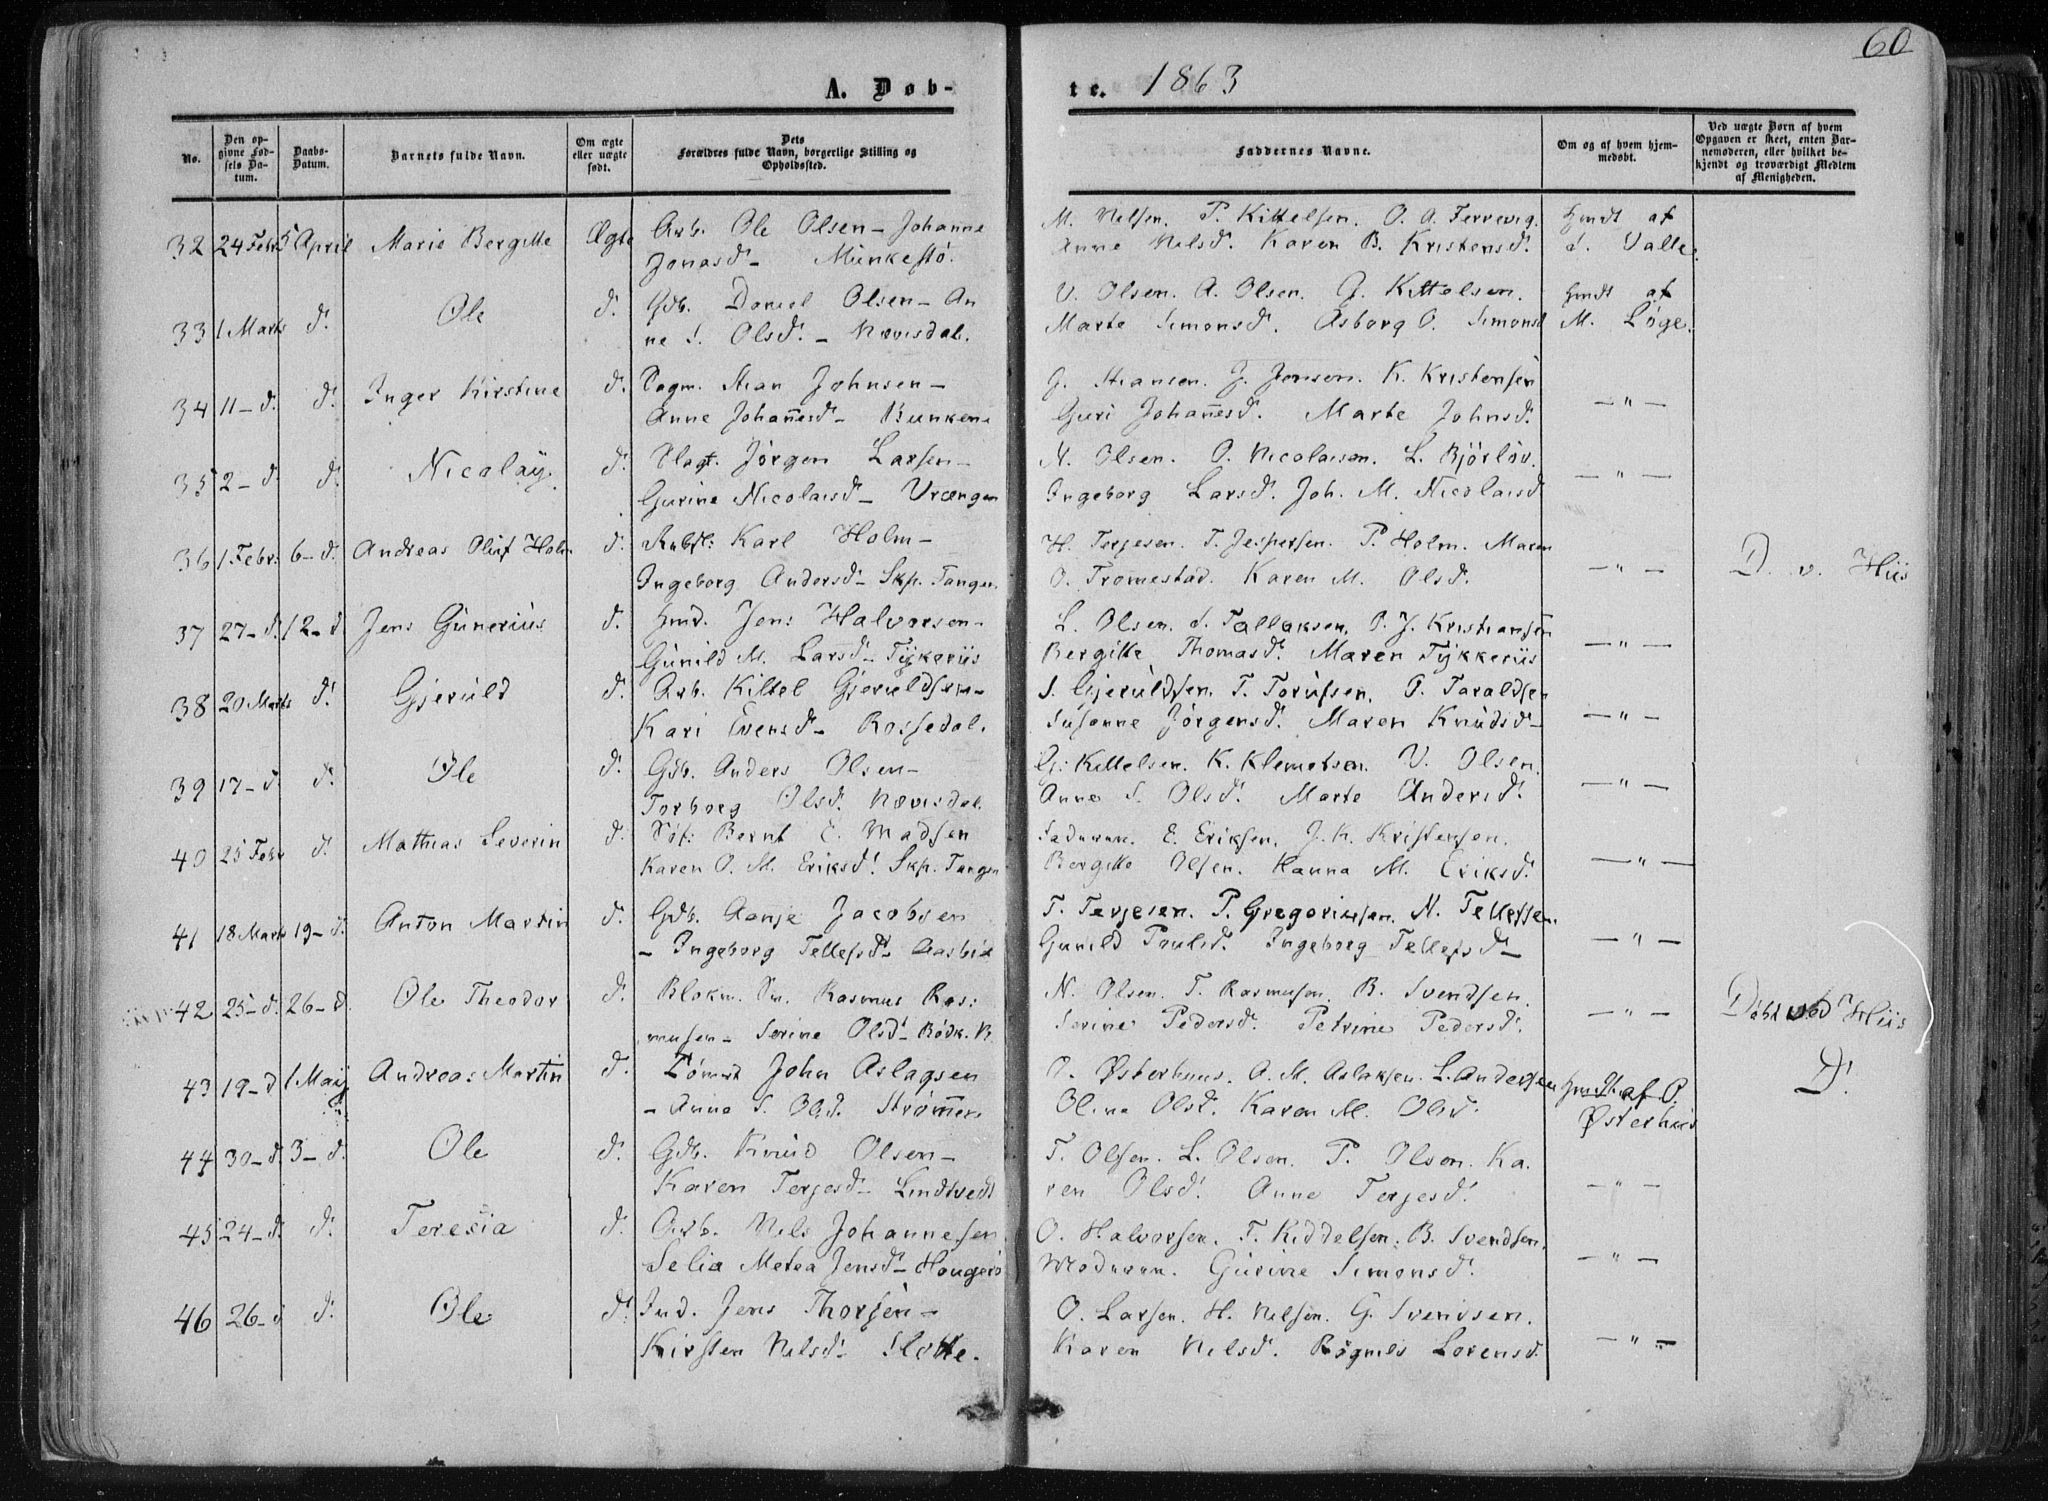 60
A. Døb-
te. 1863
No.
Den opgivne Fødsels Datum.
Daabs-Datum.
Barnets fulde Navn.
Om ægte eller uægte født.
Dets Forældres fulde Navn, borgerlige Stilling og Opholdssted.
Faddernes Navne.
Om og af hvem hjemmedøbt.
Ved uægte Børn af hvem Opgaven er skeet, enten Barnemoderen, eller hvilket bekjendt og troværdigt Medlem af Menigheden.
32 24 Febr 5 April Marie Bergitte Ægte Arb. Ole Olsen - Johanne M. Nelsen. P. Kittelsen. O. A. Ferrevig. hmdt af
Jonasd. - Munkestø. Anne Nelsd. Karen B. Kristensd. S. Valle.
33 1 Marts d. Ole d. Gdb. Daniel Olsen - An V. Olsen. A. Olsen. G. Kittelsen. hmdt af
ne S. Olsd. - Nævisdal. Marte Simonsd. Asborg O. Simonsd M. Løge.
34 11 - d. d. Inger Kirstine d. Stian Johnsen - G. Stiansen. J. Jensen. K. Kristensen
Anne Johannesd. - Bunken - Guri Johannesd. Marte Johnsd. — " —
35 2 - d. d. Nicolay. d. Slagt. Jörgen Larsen - N. Olsen. O. Nicolaisen. L. Björlöv.
Gurine Nicolaisd - Vrængen Ingeborg Larsd. Joh. M. Nicolaisd — " —
36 1 Febr: 6 - d. Andreas Oluf Holm d. Karl Holm - H. Terjesen. T. Jespersen. P. Holm. Maren
Ingeborg Andersd - Skp. Tangen. O. Tromestad. Karen M. Olsd. — " — D. v. Hiis
37 27 - d. 12 - d Jens Gunerius d. hmd. Jens Halvorsen - L. Olsen. S. Tallaksen. P. J. Kristiansen
Gunild M. Larsd - Tykeriis Bergitte Thomasd. Maren Tykkeriis — " —
38 20 Marts d. Gjeruld d. Arb. Kittel Gjeruldsen - S. Gjeruldsen. T. Torufsen. O. Taraldsen
Kari Evensd - Rossedal. Susanne Jörgensd. Maren Knudsd - — " —
39 17 - d. d. Ole d. Gdb. Anders Olsen - G: Kittelsen. K. Klemetsen. V. Olsen.
Torborg Olsd. Nævisdal. Anne S. Olsd. Marte Andersd. — " —
40 25 Febr d. Mathias Severin d. Søf: Bernt E. Madsen Faderen. E. Eriksen. J. K. Kristensen.
Karen O. M. Eriksd. Skp. Tangen Bergitte Olsen. Hanna M. Eriksd. — " —
41 18 Marts 19 - d. Anton Martin d. Gdb. Aanje Jacobsen T. Terjesen. P. Gregoriusen. N. Tellefsen.
- Ingeborg Tellefsd - Aasbie Gunild Poulsd. Ingeborg Tellefsd - — " —
42 25 - d. 26 - d. Ole Theodor d. Blokm. Sv. Rasmus Ras: N. Olsen. T. Rasmusen. B. Svendsen.
musen - Serine Olsd - Rödk. B. Serine Pedersd. Petrine Pedersd. — " — Döbt ved Hiis
43 19 - d 1 Maij Andreas Martin d. Tömmt John Aslagsen O. Østerhuus. A. M. Aslaksen. L. Andersen hmdt af O.
- Anne S. Olsd. Strømmen Oline Olsd. Karen M. Olsd. Østerhuus D.
44 30 - d. 3 - d. Ole d. Gdb. Knud Olsen - T. Olsen. L. Olsen. P. Olsen. Ka-
Karen Terjesd - Lindtvedt ren Olsd. Anne Terjesd. — " —
45 24 - d. d. Teresia d. Arb. Nels Johannesen O. Halvorsen. T. Kiddelsen. B. Svendsen.
Selia Metea Jensd - Hougerö Moderen. Gurine Simonsd. — " —
46 26 - d d. Ole d. Ind. Jens Thorsen - O. Larsen. H. Nelsen. G. Svenisen.
Kirsten Nelsd - Slotte. Karen Nelsd. Rögnild Lorensd. — " —